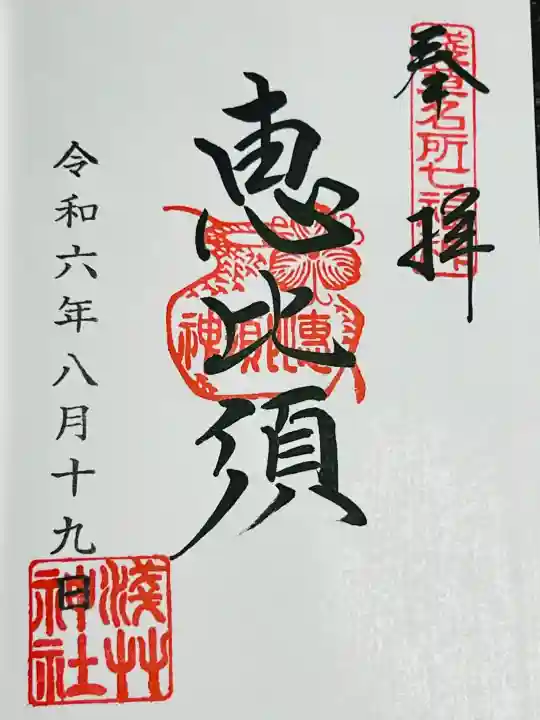 奉拝
淺草名所七福神
恵比須
惠比須神
令和六年八月十九日
淺草神社